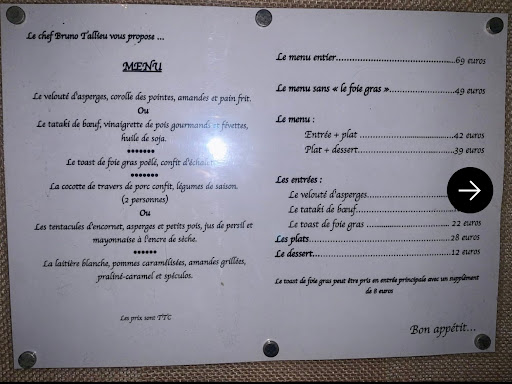 Le chef Bruno Tallieu vous propose ...
MENU
Le velouté d'asperges, corolle des pointes, amandes et pain frit.
Ou
Le tataki de bœuf, vinaigrette de pois gourmands et févettes,
huile de soja.
•••••••
Le toast de foie gras poêlé, confit
•••••••
La cocotte de travers de porc confit, légumes de saison.
(2 personnes)
Ou
Les tentacules d'encornet, asperges et petits pois, jus de persil et
mayonnaise à l'encre de sèche.
••••••
La laitière blanche, pommes caramélisées, amandes grillées,
praliné-caramel et spéculos.
Les prix sont TTC
Le menu entier............................................69 euros
Le menu sans « le foie gras »........................49 euros
Le menu :
Entrée + plat ..................................42 euros
Plat + dessert...................................39 euros
Les entrées :
Le velouté d'asperges..............................
Le tataki de bœuf...................................
Le toast de foie gras .............................. 22 euros
Les plats....................................................28 euros
Le dessert...................................................12 euros
Le toast de foie gras peut être pris en entrée principale avec un supplément
de 8 euros
Bon appétit...